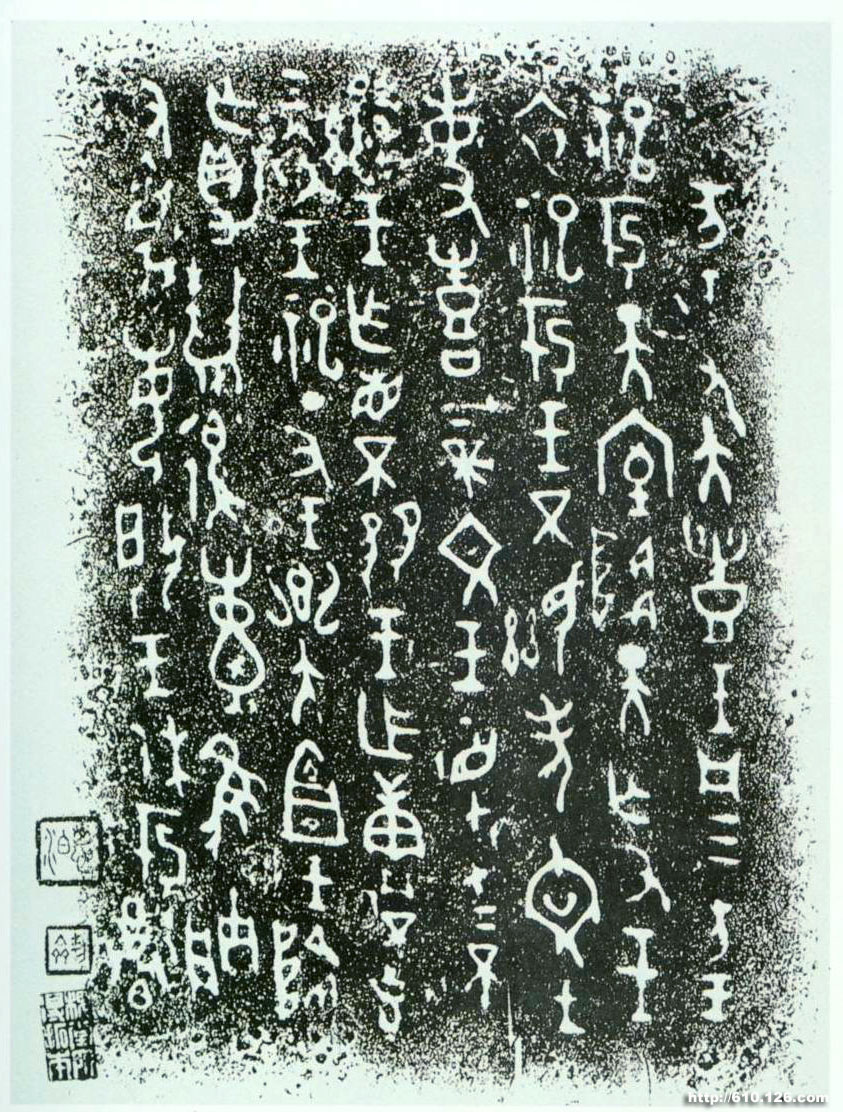 亥王又大豐王凡三方王
祀于天室降天亡又王
衣祀于王不顯考文王
事喜上帝文王監在上不
顯王乍省不王乍不克
三衣王祀丁丑王鄉大宜王降
亡爵隹朕
又王休于
http://610.126.com